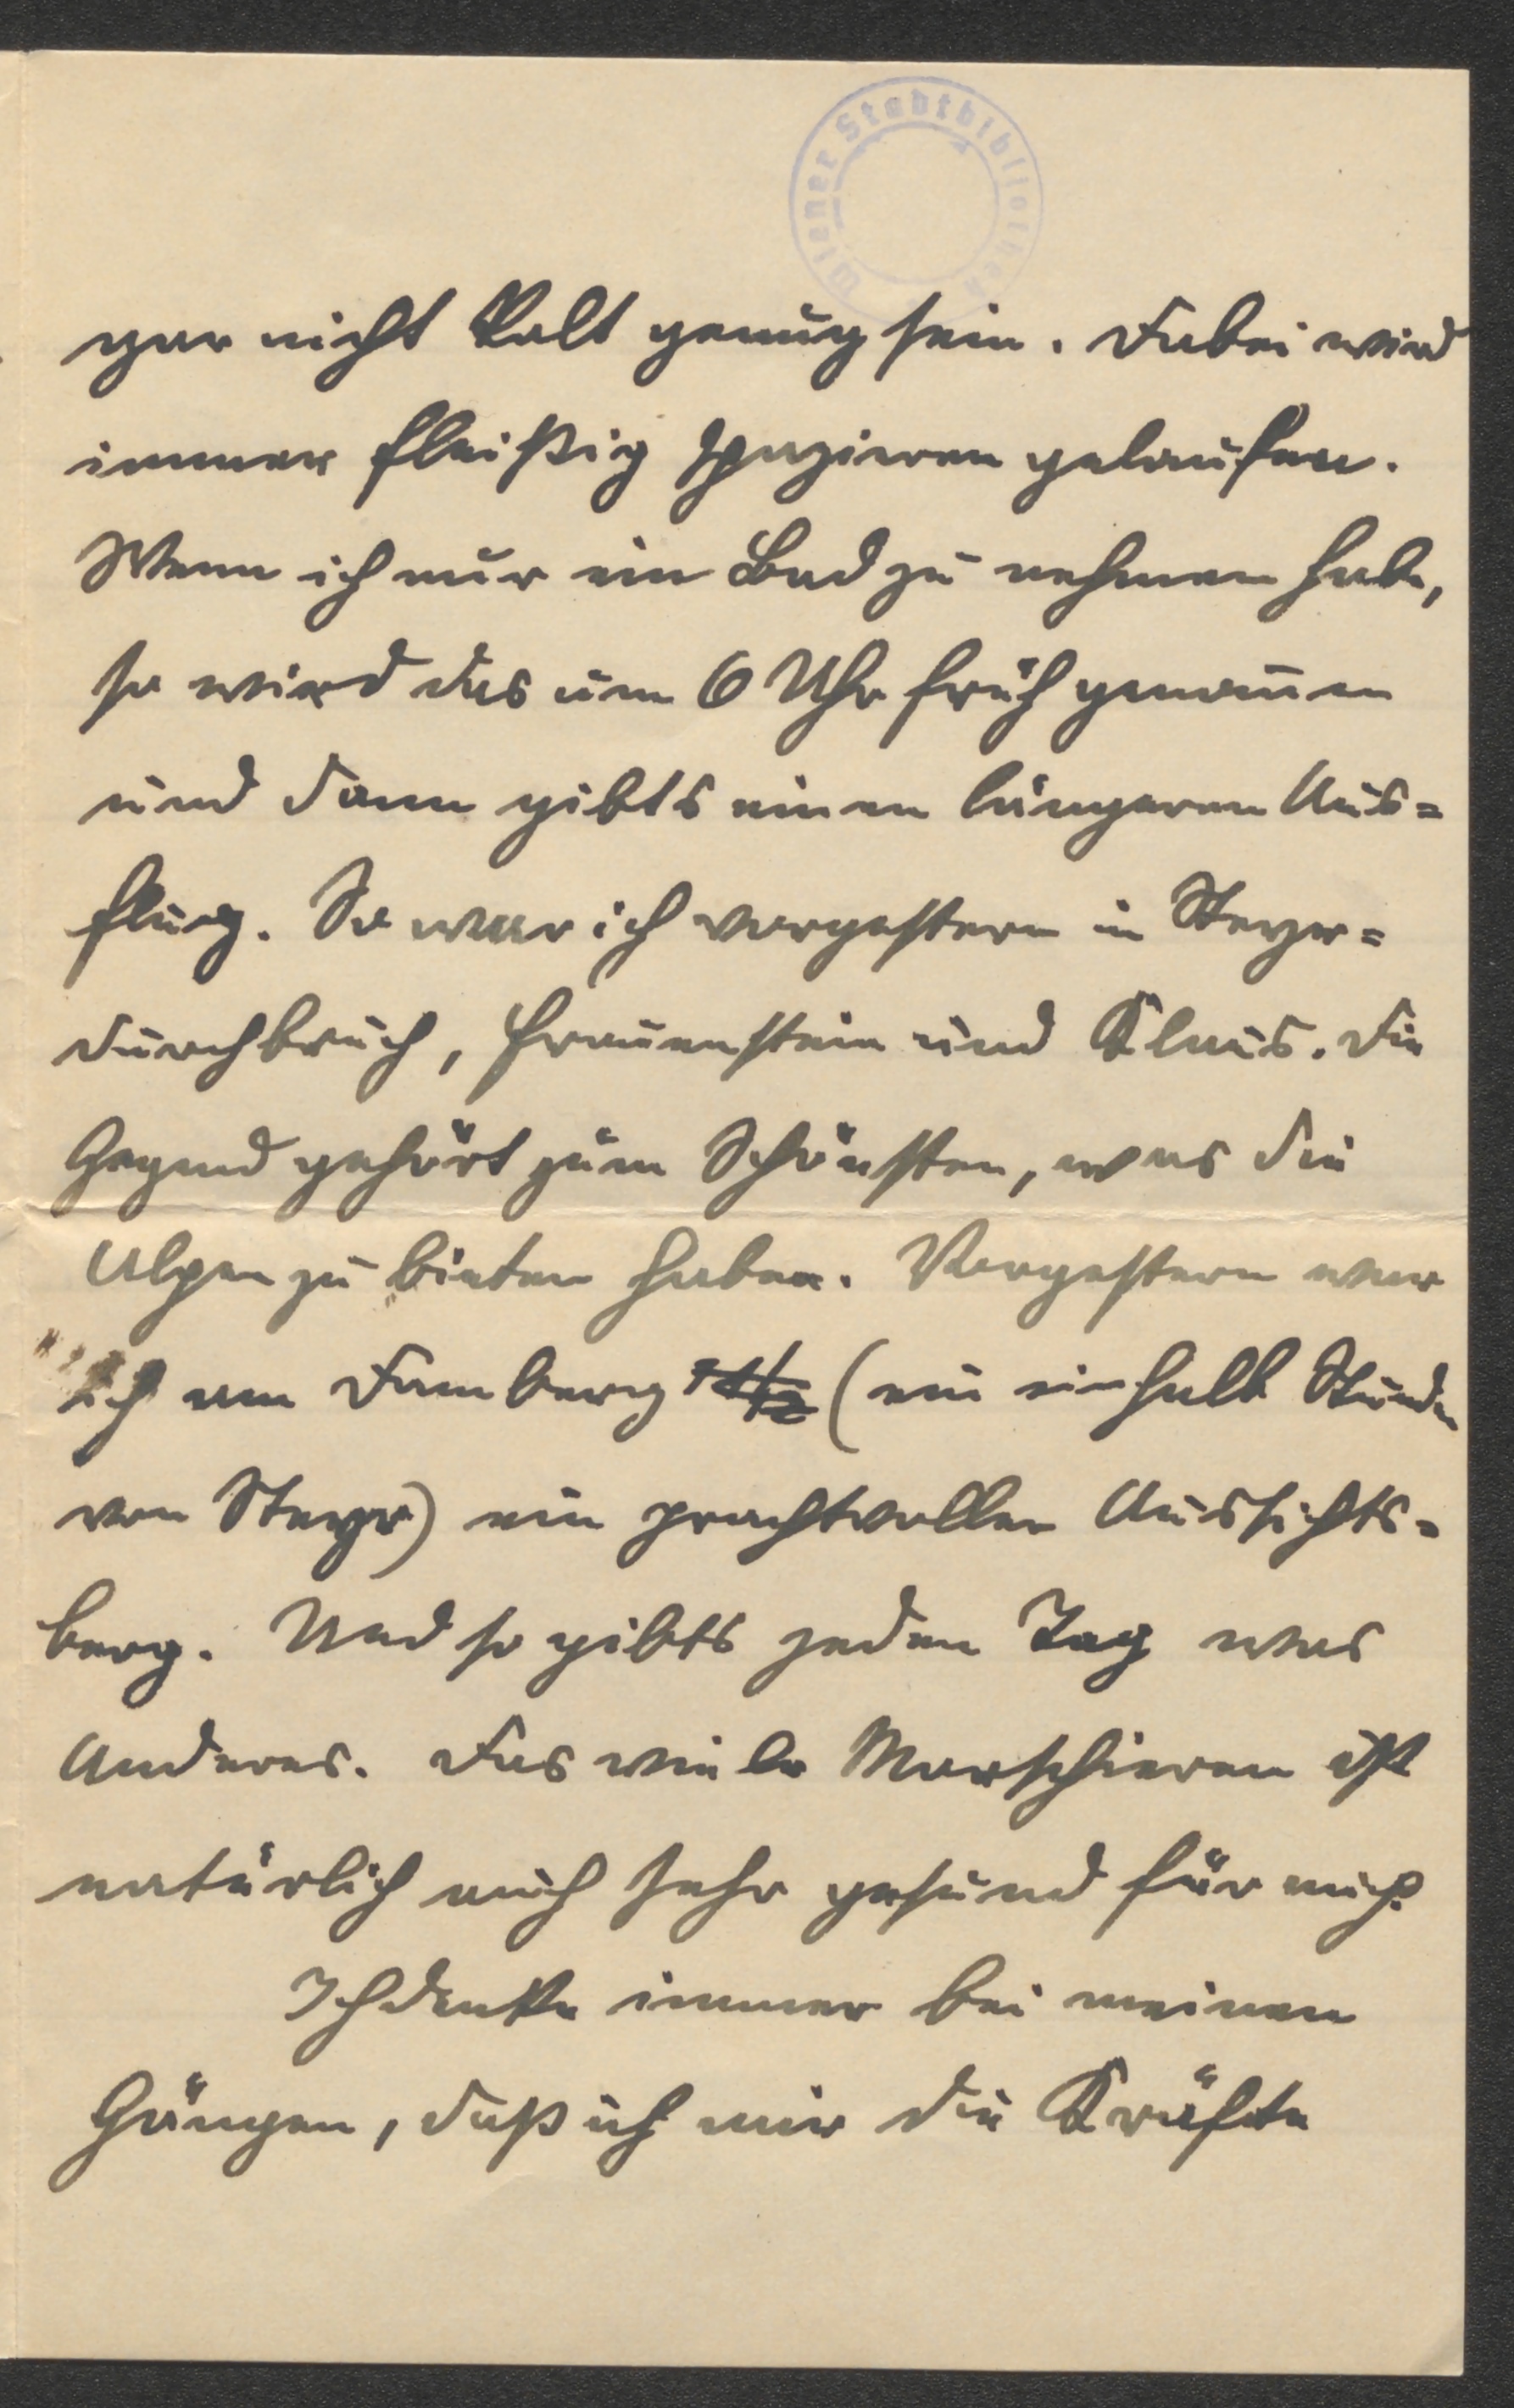 Wiener Stadtbibliothek
gar nicht kalt genug sein. Dabei wird
immer fleißig spazieren gelaufen.
Wenn ich nur ein Bad zu nehmen habe,
so wird das um 6 Uhr früh genommen
und dann gibts einen längeren Aus=
flug. So war ich vorgestern in Steyr=
durchbruch, Frauenstein und Klaus. Die
Gegend gehört zum Schönsten, was die
Alpen zu bieten haben. Vorgestern war
ich am Damberg 1 1/2 (ein einhalb Stunden
von Steyr) ein prachtvoller Aussichts=
berg. Und so gibts jeden Tag was
Anderes. Das viele Marschieren ist
natürlich auch sehr gesund für mich.
Ich denke immer bei meinen
Gängen, daß ich mir die Kräfte